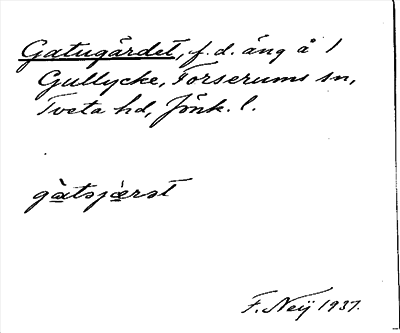 Gatugärdet, f.d. äng å 1
Gullycke, Forserums sn,
Tveta hd, Jönk. l.
gàtsjæ̀rst
F. Neij 1937.